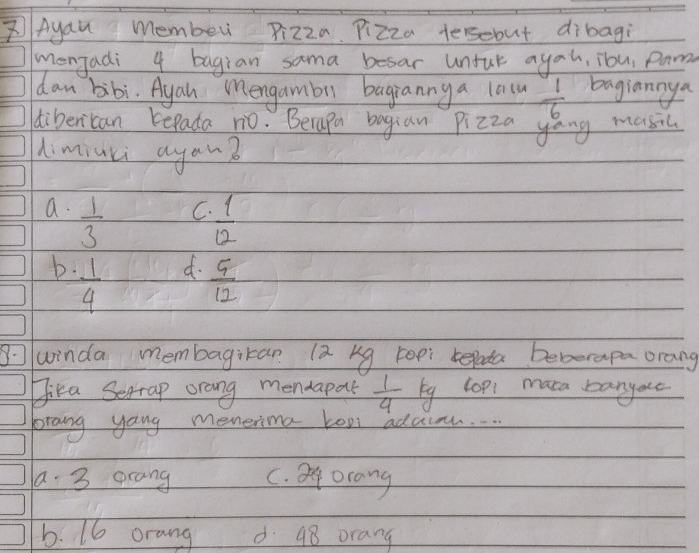 7. Ayah membeli Pizza. Pizza tersebut dibagi
menjadi 4 bagian sama besar untuk ayah, ibu, Paman
dan bibi. Ayah mengambil bagiannya lalu 1/6 bagiannya
diberikan kepada rio. Berapa bagian Pizza yang masih
dimiliki ayah?
a. 1/3 c. 1/12
b. 1/4 d. 5/12
8. winda membagikan 12 kg kopi kepada beberapa orang
Jika setiap orang mendapat 1/4 kg kopi maka banyak
orang yang menerima kopi adalah....
a. 3 orang c. 24 orang
b. 16 orang d. 48 orang